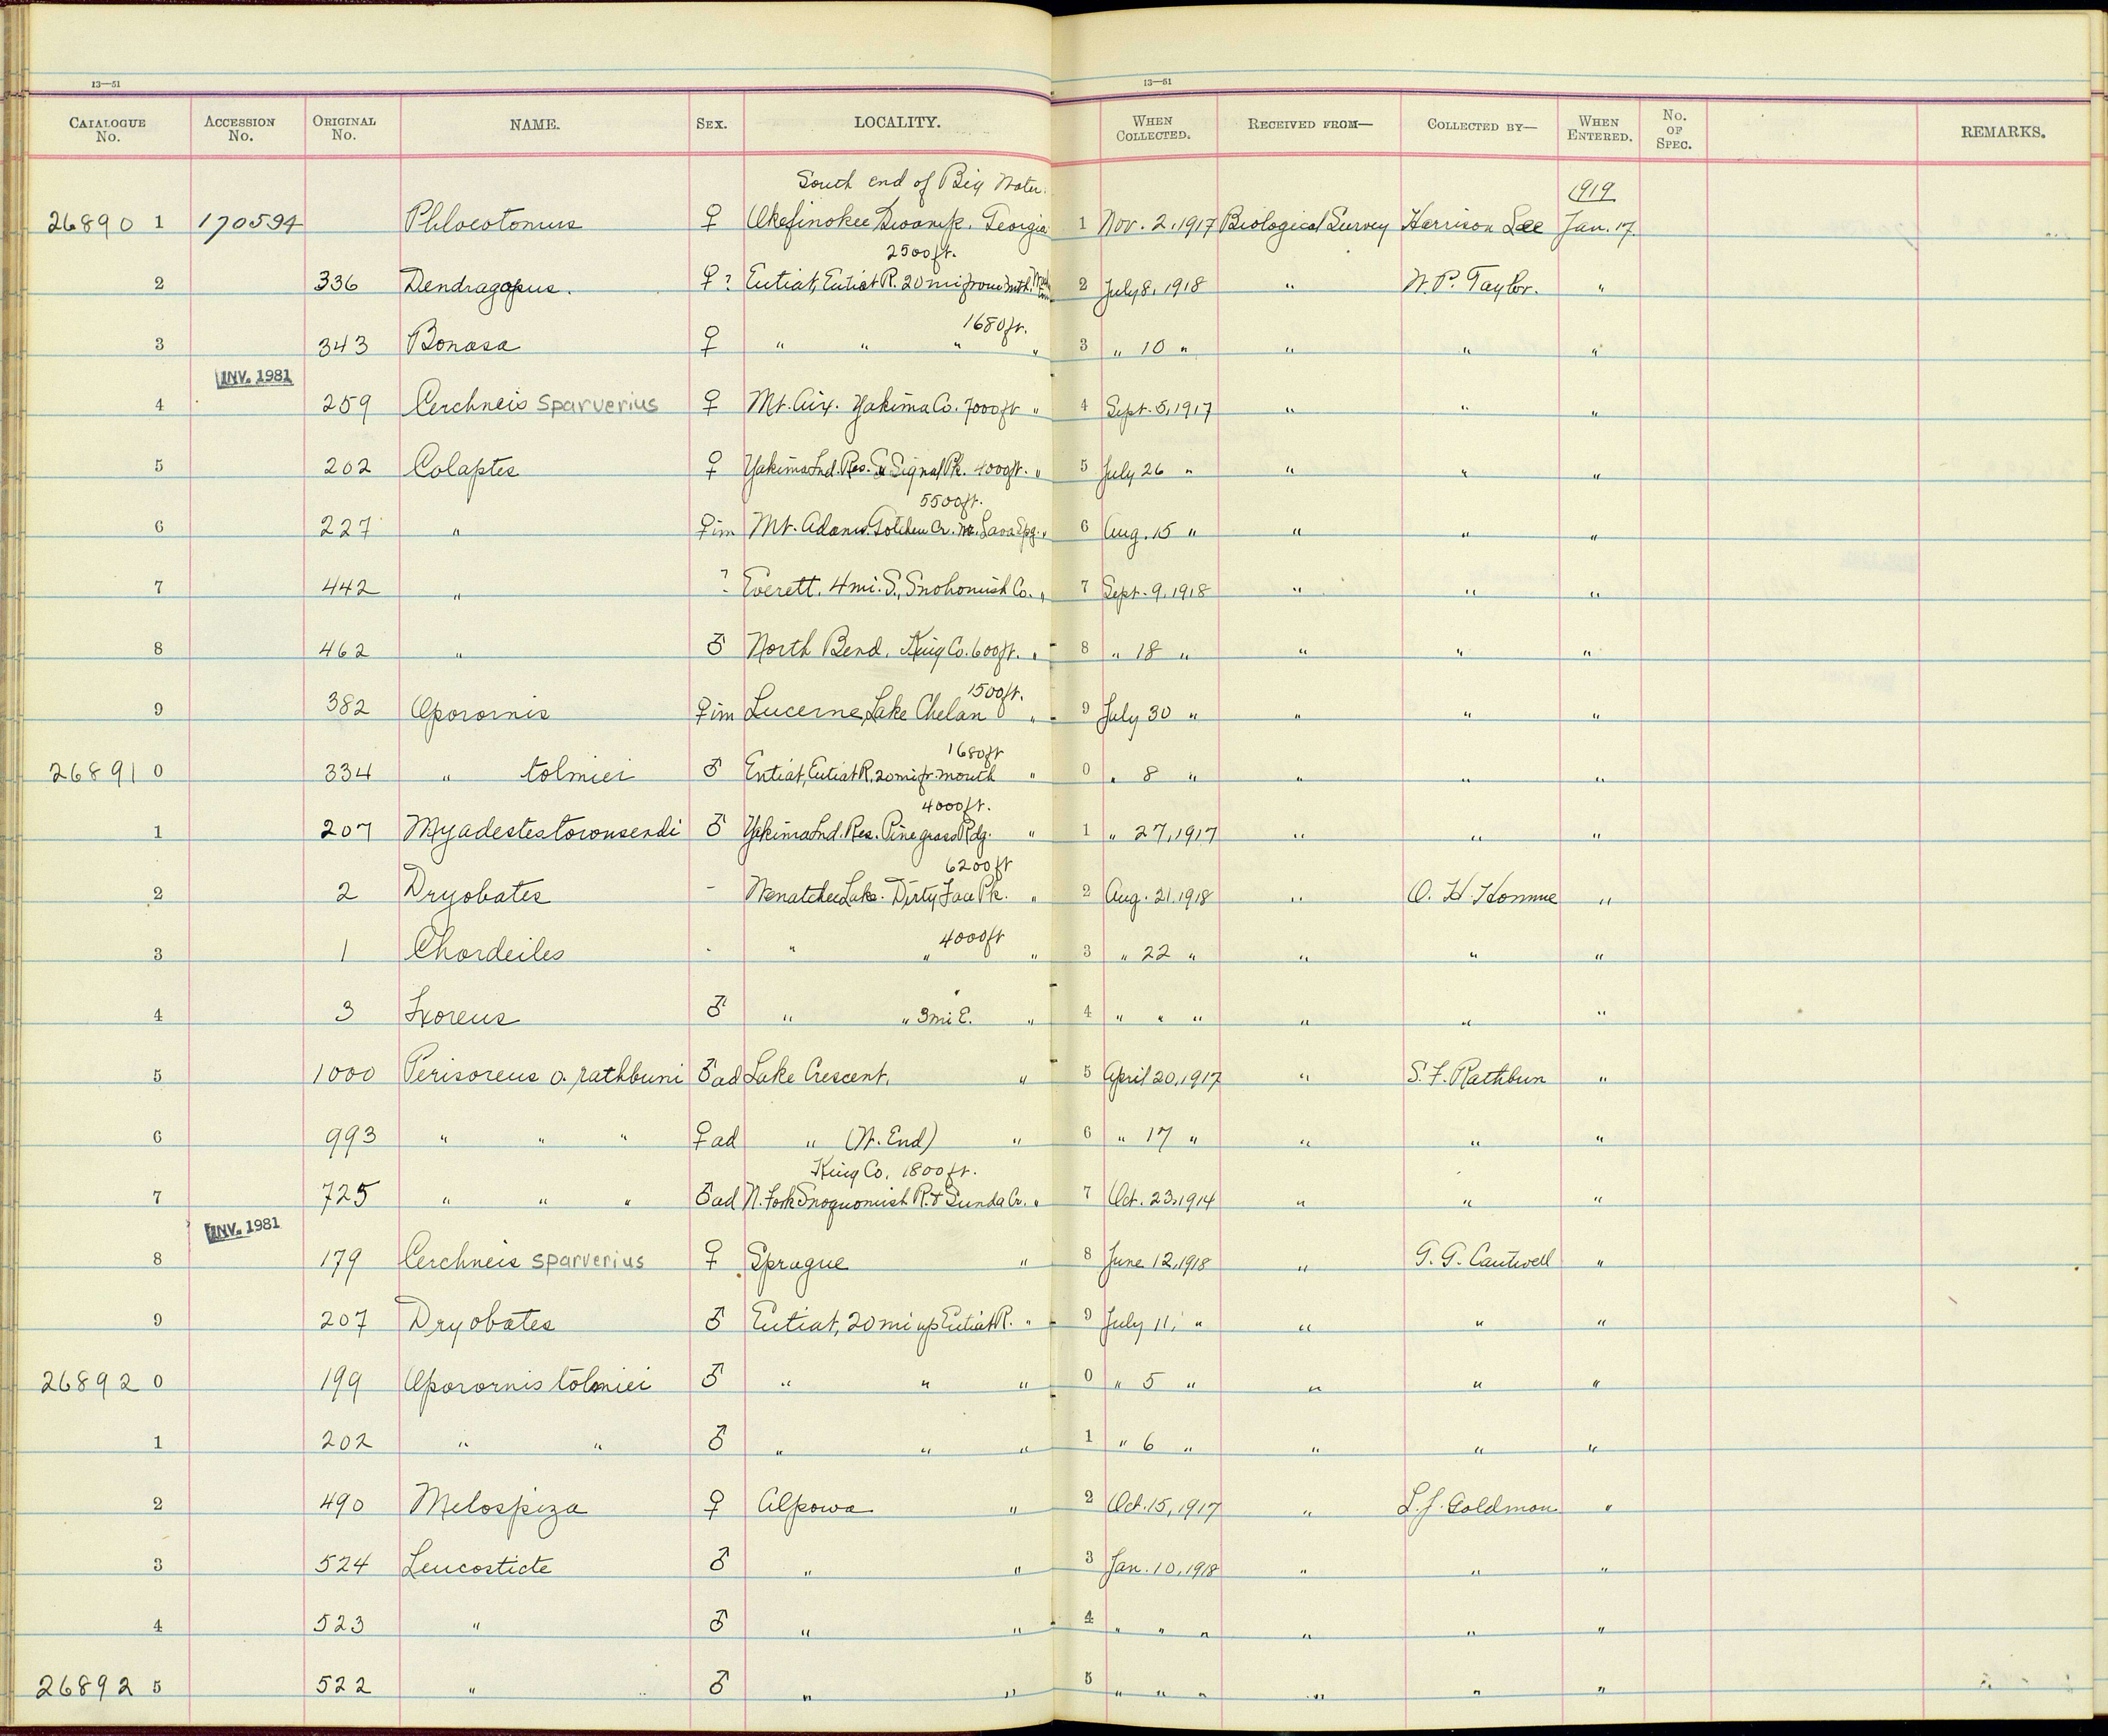 13—51 13—51
CATALOGUE No. ACCESSION No. ORIGINAL No. NAME. SEX. LOCALITY. WHEN COLLECTED. RECEIVED FROM— COLLECTED BY— WHEN ENTERED. No. OF SPEC. REMARKS.
South end of Big Water. 1919
26890 1 170594 Phloeotomus ♀ Okefinokee Swamp, Georgia 1 Nov. 2, 1917 Biological Survey Harrison Lee Jan. 17.
2500 ft.
2 336 Dendragapus. ♀? Entiat, Entiat R. 20 mi from mth. 2 July 8, 1918 " W. P. Taylor. "
1680 ft.
3 343 Bonasa ♀ " " " " 3 " 10 " " " "
INV. 1981
4 259 Cerchneis sparverius ♀ Mt. Aix. Yakima Co. 7000 ft " 4 Sept. 5, 1917 " " "
5 202 Colaptes ♀ Yakima Ind. Res. Signal Pk. 4000 ft. " 5 July 26 " " " "
5500 ft.
6 227 " ♀ im Mt. Adams. Gotchen Cr. nr. Lava Spg. " 6 Aug. 15 " " " "
7 442 " ? Everett, 4 mi. S., Snohomish Co. " 7 Sept. 9, 1918 " " "
8 462 " ♂ North Bend, King Co. 600 ft. " 8 " 18 " " " "
1500 ft.
9 382 Oporornis ♀ im Lucerne, Lake Chelan " 9 July 30 " " " "
1680 ft
26891 0 334 " tolmiei ♂ Entiat, Entiat R, 20 mi fr. mouth " 0 " 8 " " " "
4000 ft.
1 207 Myadestes townsendi ♂ Yakima Ind. Res. Pine grass Rdg. " 1 " 27, 1917 " " "
6200 ft
2 2 Dryobates - Wenatchee Lake. Dirty Face Pk. " 2 Aug. 21, 1918 " O. H. Homme "
4000 ft
3 1 Chordeiles - " " " 3 " 22 " " " "
4 3 Ixoreus ♂ " " 3 mi E. " 4 " " " " " "
5 1000 Perisoreus o. rathbuni ♂ ad Lake Crescent, " 5 April 20, 1917 " S. F. Rathbun "
6 993 " " " ♀ ad " (W. End) " 6 " 17 " " " "
King Co. 1800 ft.
7 725 " " " ♂ ad N. Fork Snoquomish R. & Sunda Cr. " 7 Oct. 23, 1914 " " "
INV. 1981
8 179 Cerchneis sparverius ♀ Sprague " 8 June 12, 1918 " G. G. Cantwell "
9 207 Dryobates ♂ Entiat, 20 mi up Entiat R. " 9 July 11, " " " "
26892 0 199 Oporornis tolmiei ♂ " " " 0 " 5 " " " "
1 202 " " ♂ " " " 1 " 6 " " " "
2 490 Melospiza ♀ Alpowa " 2 Oct. 15, 1917 " L. J. Goldman "
3 524 Leucosticte ♂ " " 3 Jan. 10, 1918 " " "
4 523 " ♂ " " 4 " " " " " "
26892 5 522 " ♂ " " 5 " " " " " "